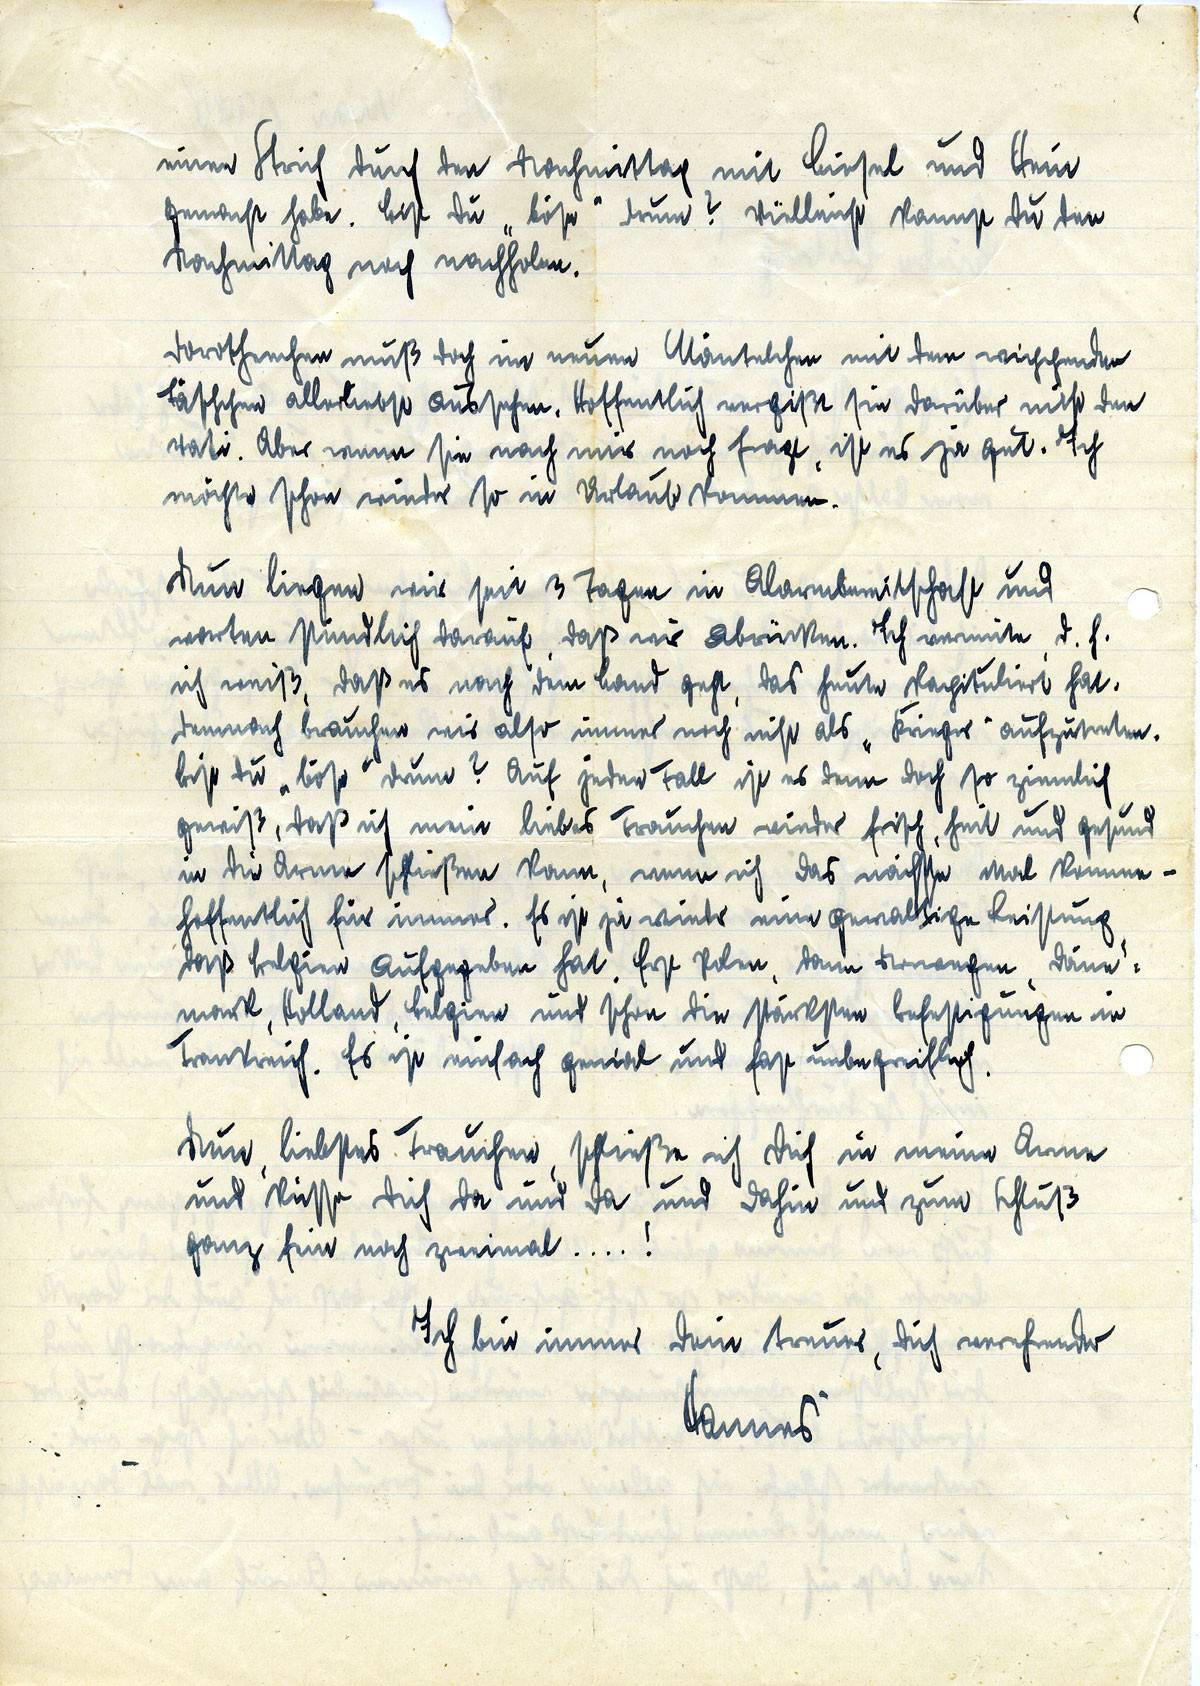 einen Strich durch den Nachmittag mit Liesel und Hein
gemacht habe. Bist Du „böse" drum? Vielleicht kannst Du den
Nachmittag noch nachholen.
Dorotheechen muß doch im neuen Mäntelchen mit dem
Täschchen allerliebst aussehen. Hoffentlich vergißt sie darüber nicht den
Vati. Aber wenn sie nach mir noch fragt, ist es ja gut. Ich
möchte schon wieder so in Urlaub kommen.
Nun liegen wir seit 3 Tagen in Alarmbereitschaft und
warten stündlich darauf, daß wir abrücken. Ich vermute, d. h.
ich weiß, daß es nach dem Land geht, das heute kapituliert hat.
Demnach brauchen wir also immer noch nicht als „Krieger" aufzutreten.
Bist Du „böse" drum? Auf jeden Fall ist es denn doch so ziemlich
gewiß, daß ich mein liebes Frauchen wieder frisch, heil und gesund
in die Arme schließen kann, wenn ich das nächste Mal komme -
hoffentlich für immer. Es ist ja wieder eine gewaltige Leistung,
daß Belgien aufgegeben hat. Erst Polen, dann Norwegen, Däne-
mark, Holland, Belgien und schon die stärksten Befestigungen in
Frankreich. Es ist einfach genial und fast unbegreiflich.
Nun, liebstes Frauchen, schließe ich Dich in meine Arme
und küsse Dich da und da und dahin und zum Schluß
ganz fein noch zweimal ....!
Ich bin immer Dein treuer, Dich verehrender
Hannes